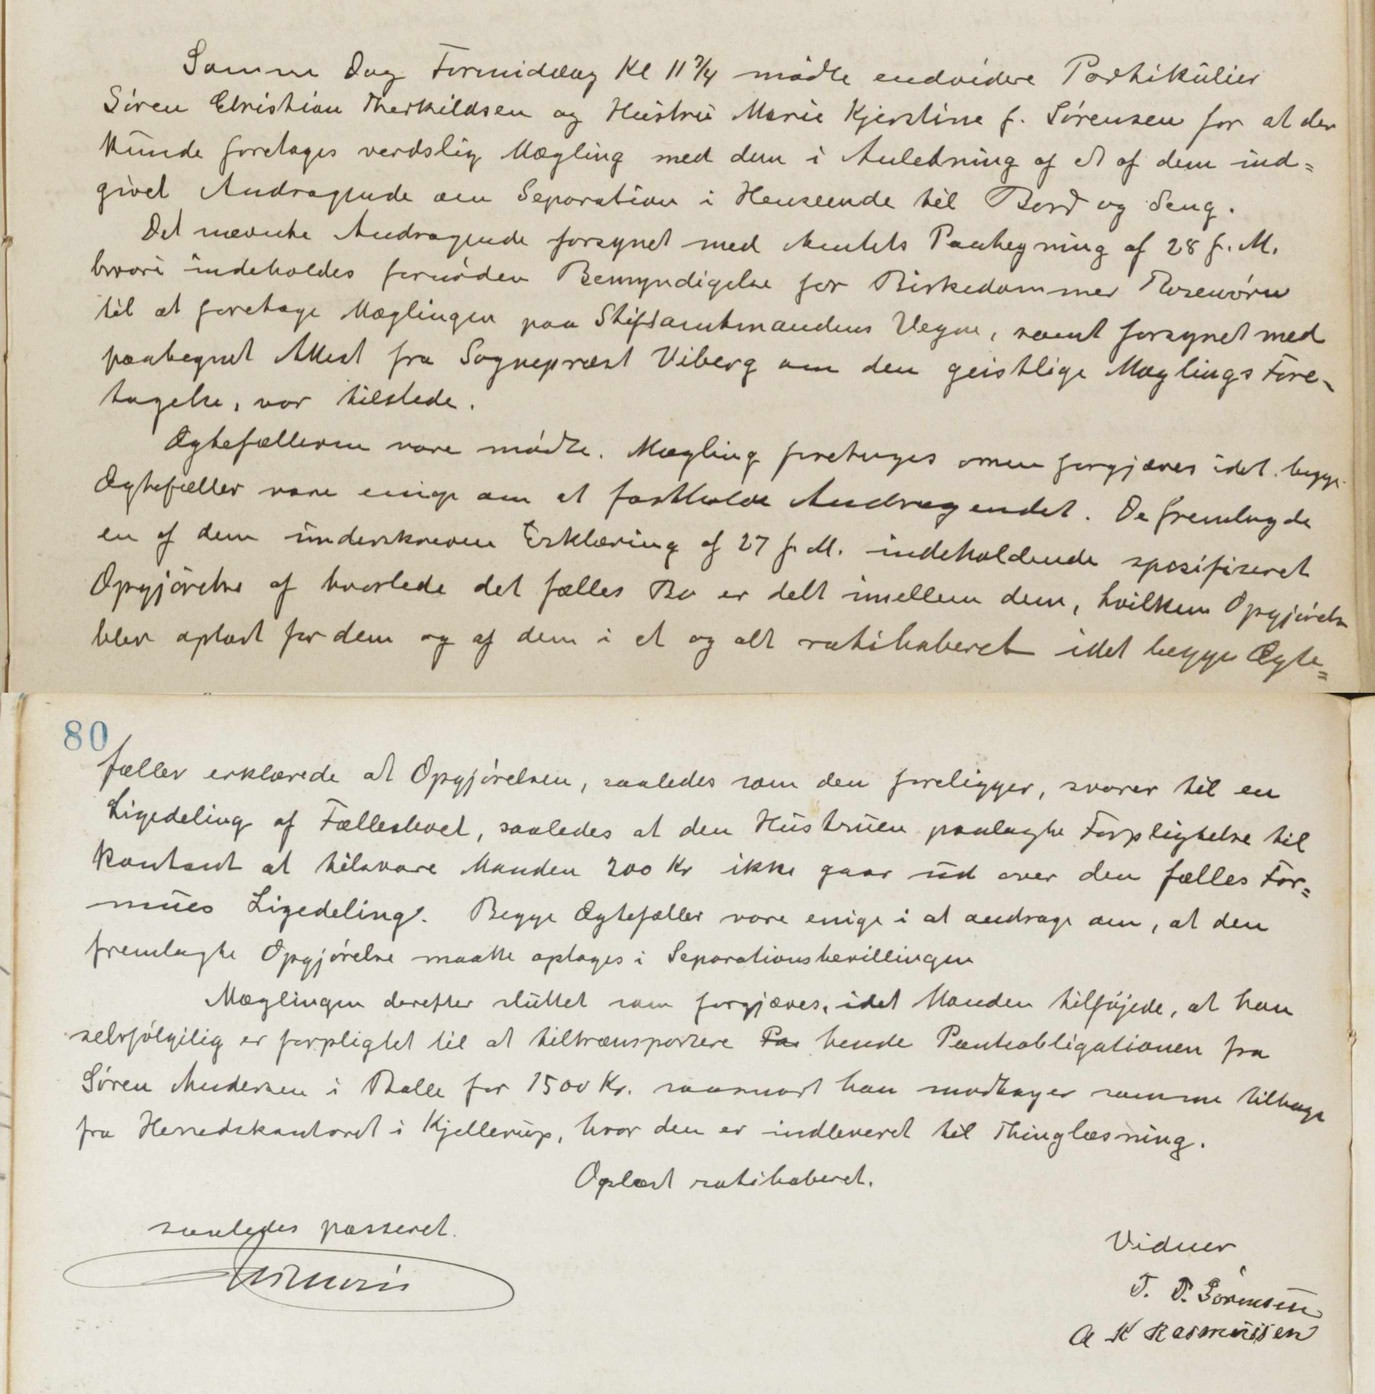 Samme Dag Formiddag Kl 11 3/4 mødte endvidere Partikulier
Søren Christian Therkildsen og Hustru Marie Kjerstine f. Sørensen for at der
kunde foretages verdslig Mægling med dem i Anledning af et af dem ind=
givet Andragende om Separation i Henseende til Bord og Seng.
Det nævnte Andragende forsynet med Amtets Paategning af 28 f. M.
hvori indeholdes fornøden Bemyndigelse for Birkedommer Rosenørn
til at foretage Mæglingen paa Stiftamtmandens Vegne, samt forsynet med
paategnet Attest fra Sognepræst Viberg om den geistlige Mæglings Fore-
tagelse, var tilstede.
Ægtefællerne vare mødte. Mægling foretoges men forgjæves idet begge
Ægtefæller vare enige om at fastholde Andragendet. De fremlagde
en af dem underskreven Erklæring af 27 f. M. indeholdende spesifiseret
Opgjørelse af hvorlede det fælles Bo er delt imellem dem, hvilken Opgjørelse
blev oplæst for dem og af dem i et og alt ratihaberet idet begge Ægte=
80
fæller erklærede at Opgjørelsen, saaledes som den foreligger, svarer til en
Ligedeling af Fællesboet, saaledes at den Hustruen paalagte Forpligtelse til
kontant at tilsvare Manden 200 Kr ikke gaar ud over den fælles For=
mues Ligedeling. Begge Ægtefæller vare enige i at andrage om, at den
fremlagte Opgjørelse maatte optages i Separationsbevillingen
Mæglingen derefter sluttet som forgjæves, idet Manden tilføjede, at han
selvfølgelig er forpligtet til at tiltransportere hende Panteobligationen fra
Søren Andersen i Balle for 1500 Kr. saasnart han modtager samme tilbage
fra Herredskontoret i Kjellerup, hvor den er indleveret til Thinglæsning.
Oplæst ratihaberet.
saaledes passeret.
Vidner
T. P. Sørensen
A K Rasmussen